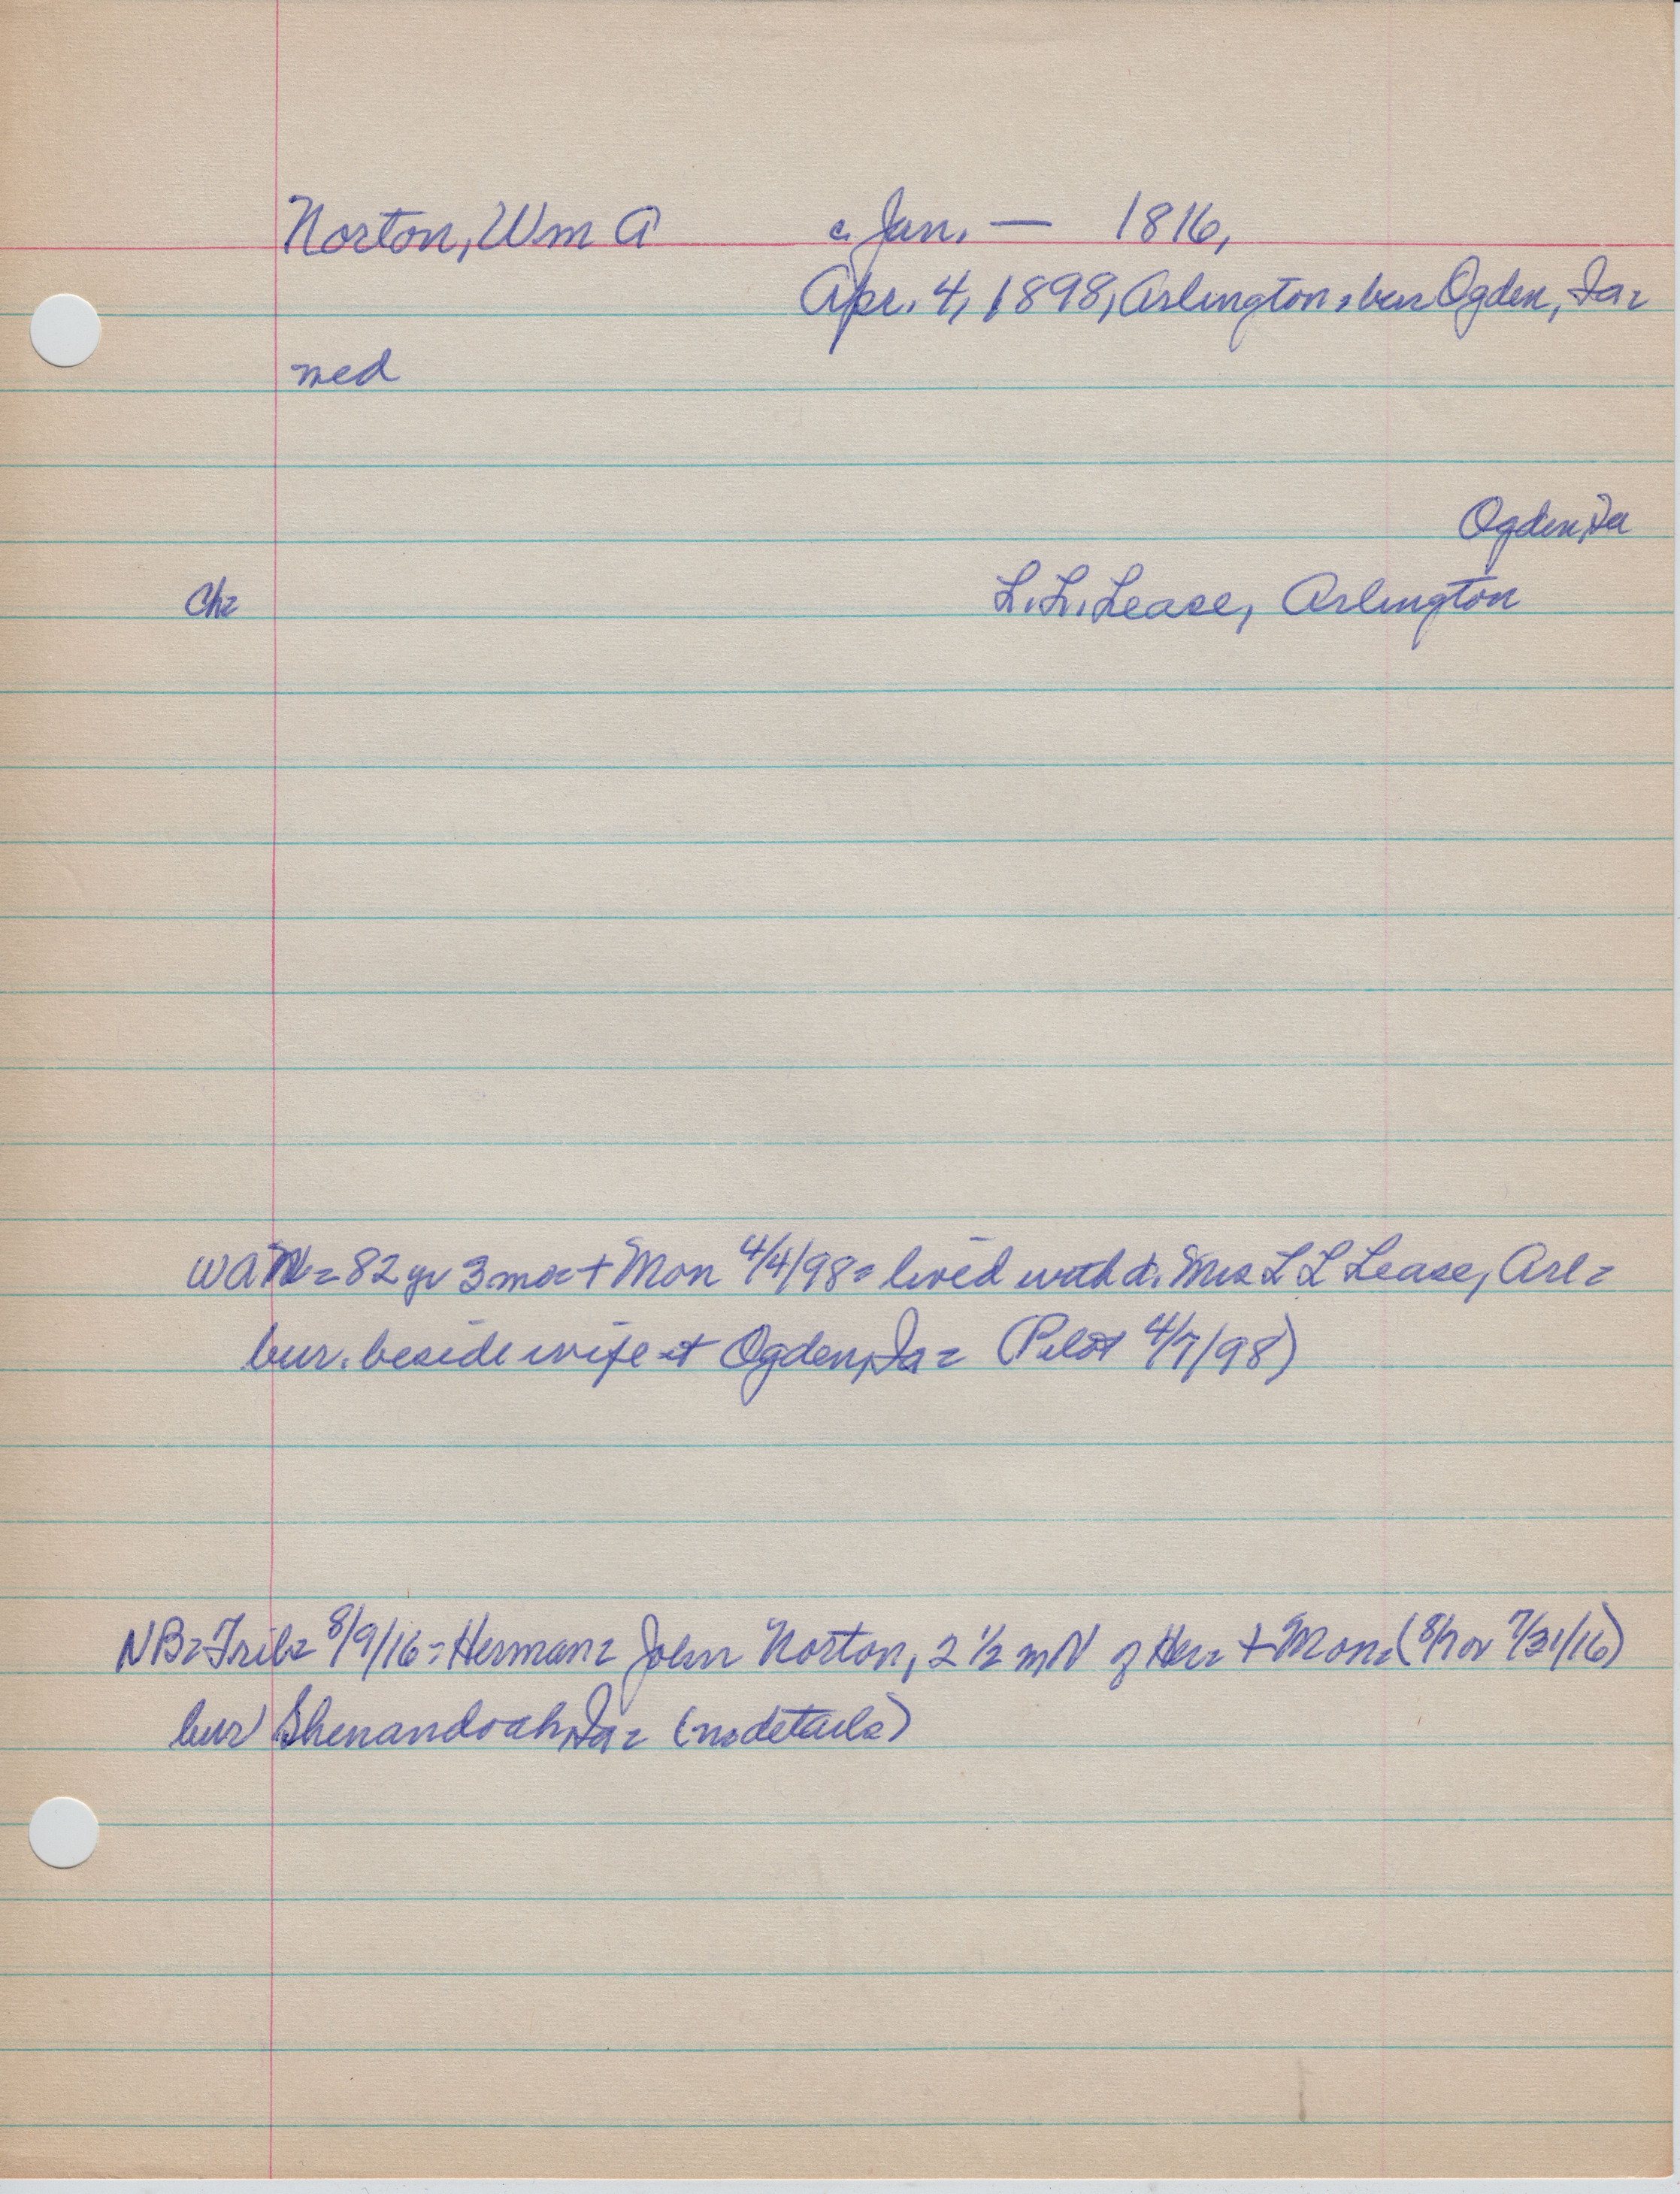 Norton, Wm A c. Jan. — 1816,
Apr. 4, 1898, Arlington = bur Ogden, Ia =
med
Ogden, Ia
Ch = L. L. Lease, Arlington
WAN = 82 yr 3 mo = + Mon 4/4/98 = lived with d. Mrs L L Lease, Arl =
bur. beside wife at Ogden, Ia = (Pilot 4/7/98)
NB = Trib = 8/9/16 = Herman = John Norton, 2 1/2 mN of Her = + Mon = (8/7 or 7/31/16)
bur Shenandoah, Ia = (no details)